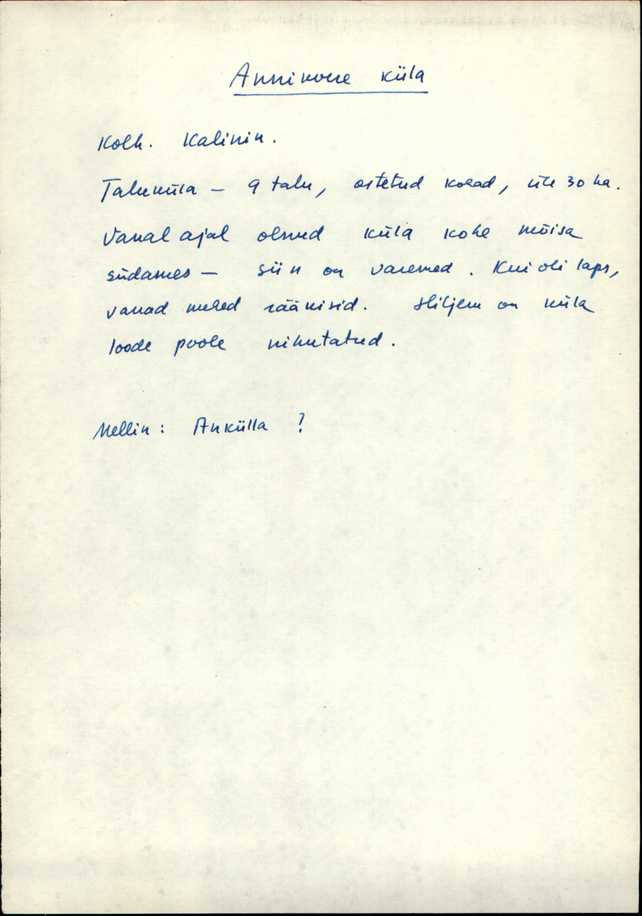 Annikvere küla
Kolh. Kalinin.
Taluküla – 9 talu, ostetud kohad, üle 30 ha.
Vanal ajal olnud küla kohe mõisa
südames – siin on varemed. Kui oli laps,
vanad mehed rääkisid. Hiljem on küla
loode poole nihutatud.
Mellin: Ankülla ?